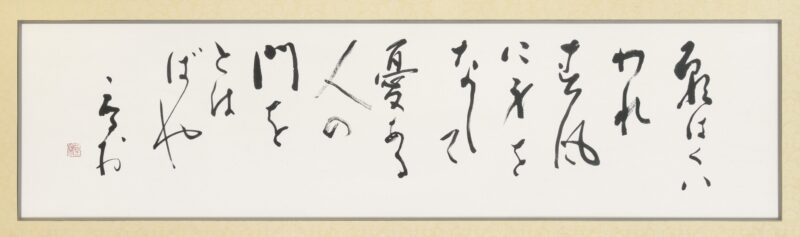 願はくハ
われ
春風
に身を
なして
憂ある
人の
門を
とは
ばや